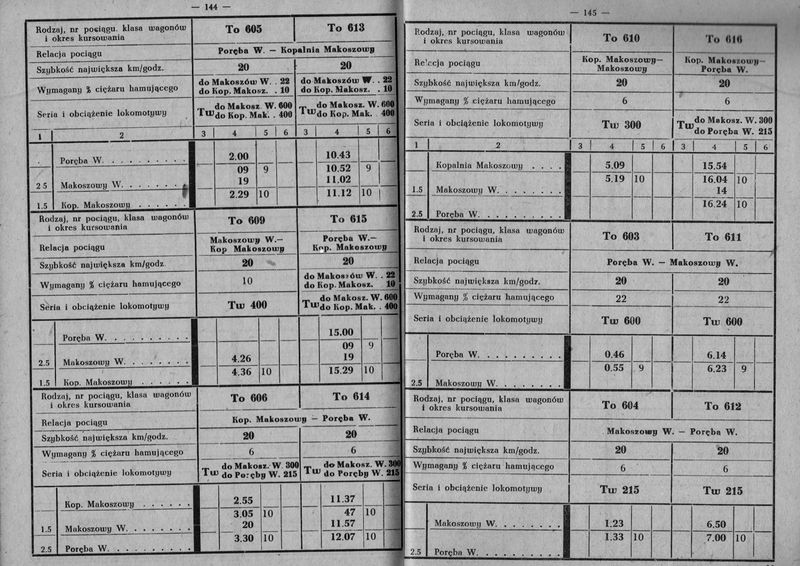 — 144 —
Rodzaj, nr pociągu, klasa wagonów i okres kursowania | To 605 | To 613
Relacja pociągu | Poręba W. — Kopalnia Makoszowy
Szybkość największa km/godz. | 20 | 20
Wymagany % ciężaru hamującego | do Makoszów W. . 22 do Kop. Makosz. . 10 | do Makoszów W. . 22 do Kop. Makosz. . 10
Seria i obciążenie lokomotywy | Tw do Makosz. W. 600 do Kop. Mak. . 400 | Tw do Makosz. W. 600 do Kop. Mak. . 400
1 | 2 | 3 | 4 | 5 | 6 | 3 | 4 | 5 | 6
Poręba W. | 2.00 | 10.43
09 | 9 | 10.52 | 9
2 5 | Makoszowy W. | 19 | 11.02
1.5 | Kop. Makoszowy | 2.29 | 10 | 11.12 | 10
Rodzaj, nr pociągu, klasa wagonów i okres kursowania | To 609 | To 615
Relacja pociągu | Makoszowy W.— Kop Makoszowy | Poręba W.— Kop. Makoszowy
Szybkość największa km/godz. | 20 | 20
Wymagany % ciężaru hamującego | 10 | do Makoszów W. . 22 do Kop. Makosz. 10
Seria i obciążenie lokomotywy | Tw 400 | Tw do Makosz. W. 600 do Kop. Mak. . 400
Poręba W. | 15.00
09 | 9
2.5 | Makoszowy W. | 4.26 | 19
1.5 | Kop. Makoszowy | 4.36 | 10 | 15.29 | 10
Rodzaj, nr pociągu, klasa wagonów i okres kursowania | To 606 | To 614
Relacja pociągu | Kop. Makoszowy — Poręba W.
Szybkość największa km/godz. | 20 | 20
Wymagany % ciężaru hamującego | 6 | 6
Seria i obciążenie lokomotywy | Tw do Makosz. W. 300 do Poręby W. 215 | Tw do Makosz. W. 300 do Poręby W. 215
Kop. Makoszowy | 2.55 | 11.37
3.05 | 10 | 47 | 10
1.5 | Makoszowy W. | 20 | 11.57
2.5 | Poręba W. | 3.30 | 10 | 12.07 | 10
— 145 —
Rodzaj, nr pociągu, klasa wagonów i okres kursowania | To 610 | To 616
Relacja pociągu | Kop. Makoszowy— Makoszowy | Kop. Makoszowy— Poręba W.
Szybkość największa km/godz. | 20 | 20
Wymagany % ciężaru hamującego | 6 | 6
Seria i obciążenie lokomotywy | Tw 300 | Tw do Makosz. W. 300 do Poręba W. 215
1 | 2 | 3 | 4 | 5 | 6 | 3 | 4 | 5 | 6
Kopalnia Makoszowy | 5.09 | 15.54
5.19 | 10 | 16.04 | 10
1.5 | Makoszowy W. | 14
2.5 | Poręba W. | 16.24 | 10
Rodzaj, nr pociągu, klasa wagonów i okres kursowania | To 603 | To 611
Relacja pociągu | Poręba W. — Makoszowy W.
Szybkość największa km/godz. | 20 | 20
Wymagany % ciężaru hamującego | 22 | 22
Seria i obciążenie lokomotywy | Tw 600 | Tw 600
Poręba W. | 0.46 | 6.14
2.5 | Makoszowy W. | 0.55 | 9 | 6.23 | 9
Rodzaj, nr pociągu, klasa wagonów i okres kursowania | To 604 | To 612
Relacja pociągu | Makoszowy W. — Poręba W.
Szybkość największa km/godz. | 20 | 20
Wymagany % ciężaru hamującego | 6 | 6
Seria i obciążenie lokomotywy | Tw 215 | Tw 215
Makoszowy W. | 1.23 | 6.50
2.5 | Poręba W. | 1.33 | 10 | 7.00 | 10